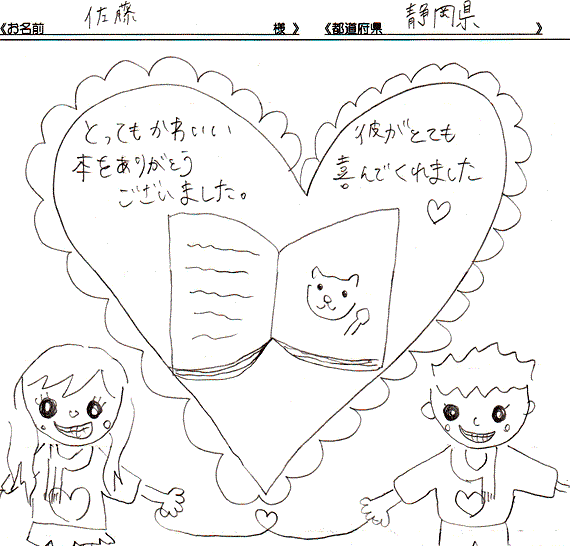 《お名前 佐藤 様 》 《都道府県 静岡県 》
とってもかわいい
本をありがとう
ございました。
彼がとても
喜んでくれました